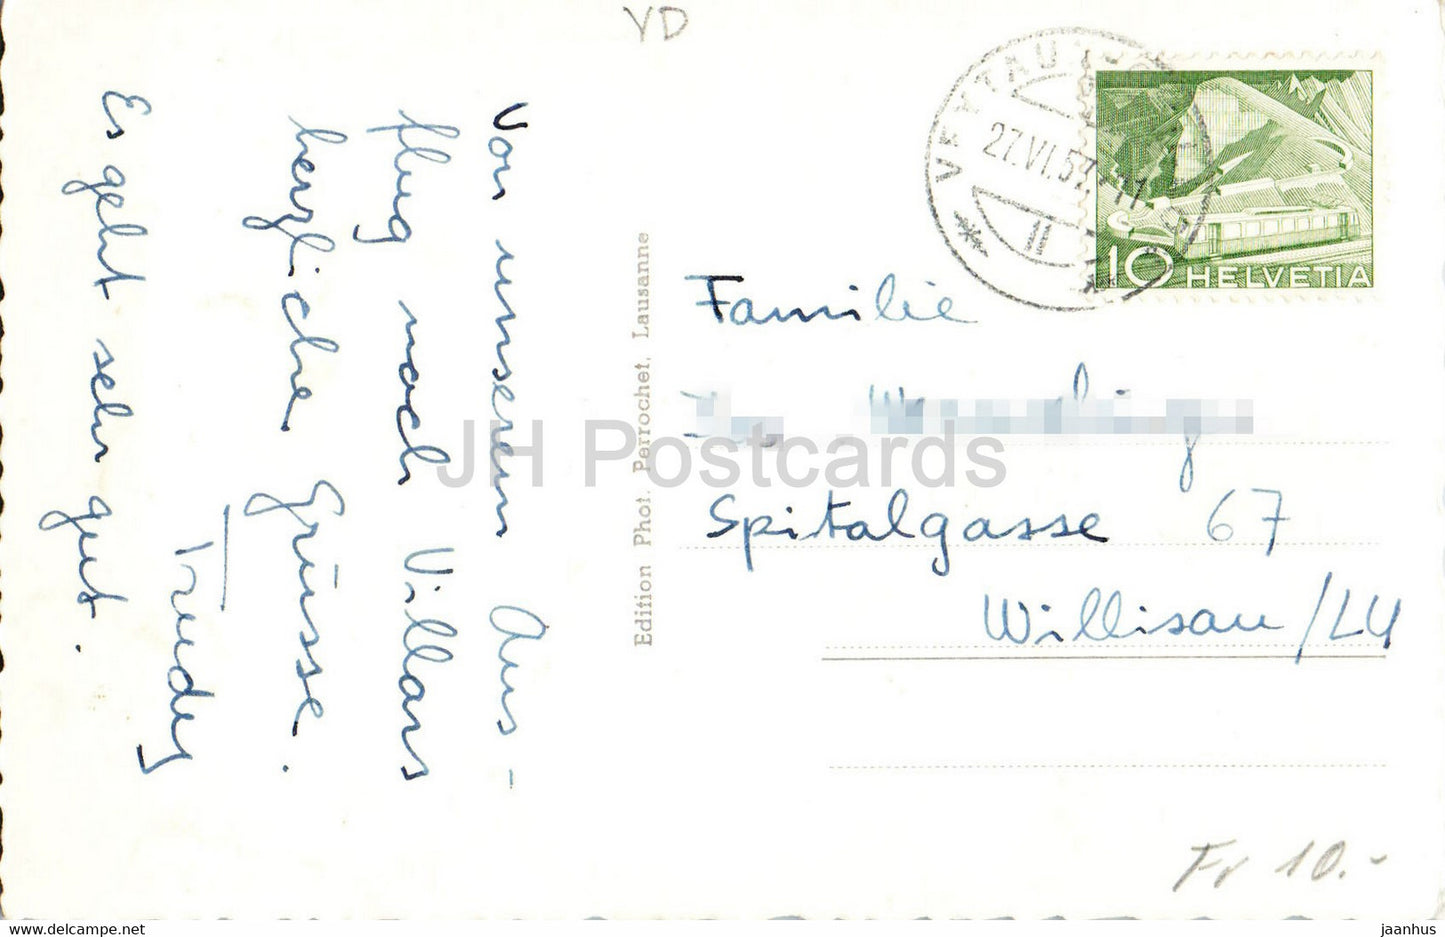 VD
Von unserem Aus-
flug nach Villars
herzliche Grüsse.
Trudy
Es geht sehr gut.
Edition Phot. Perrochet, Lausanne
VEYTAUX
27.VI.57.-11
10 HELVETIA
Familie
Spitalgasse 67
Willisau/LU
Fr 10.-
JH Postcards
www.delcampe.net
jaanhus